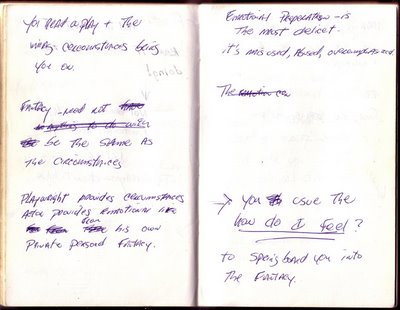 You read a play + the
circumstances bring
you on.
Fantasy - need not
be the same as
the circumstances
Playwright provides circumstances
Actor provides Emotional life
from his own
private personal fantasy.
Emotional Preparation - is
the most delicate.
it's misused, abused,
The
→ you use the
how do I feel?
to spring board you into
the Fantasy.